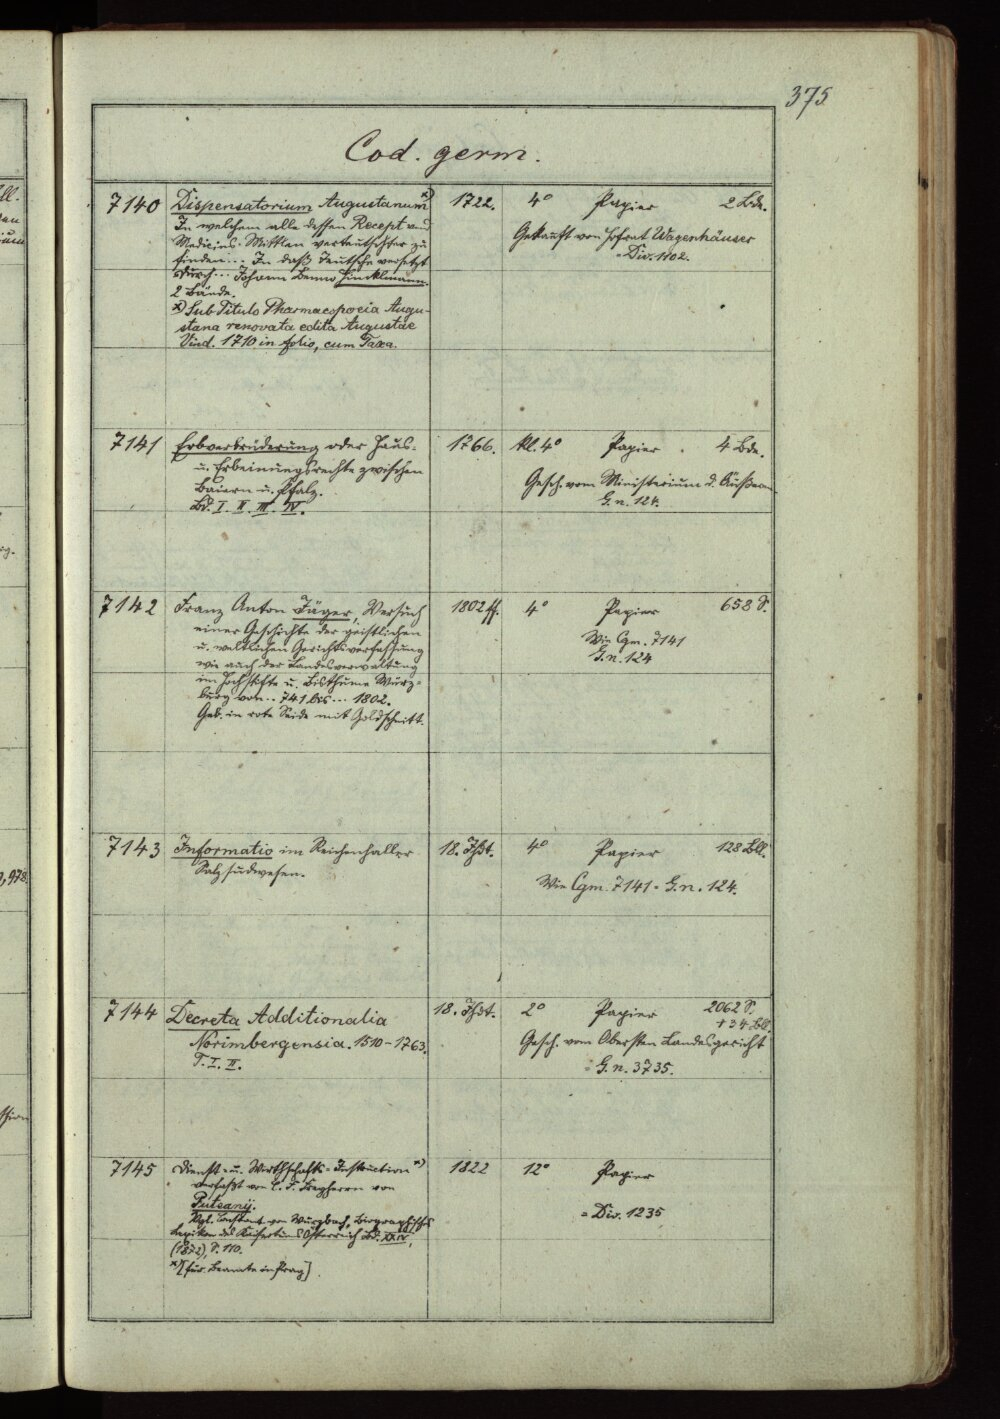 375
Cod. germ.
7140 Dispensatorium Augustanum x) 1722. 4° Papier 2 Bde.
In welchem alle dessen Recept und
Medicins-Mittlen verteutschter zu
finden... In daß Teutsche versetzt
durch... Johann Benno Hincklmann.
2 Bände.
x) Sub Titulo Pharmacopoeia Augu-
stana renovata edita Augustae
Vind. 1710 in folio, cum Taxa.
Gekauft von Hofrat Wagenhäuser
= Div. 1102.
7141 Erbverbrüderung oder Haus- 1766. kl. 4° Papier 4 Bde.
u. Erbeinungsrechte zwischen
Baiern u. Pfalz.
Bd. I. II. III. IV.
Gesch. vom Ministerium d. Äußern
G. n. 124.
7142 Franz Anton Jäger, Versuch 1802 ff. 4° Papier 658 S.
einer Geschichte der geistlichen
u. weltlichen Gerichtsverfassung
wie auch der Landesverwaltung
im Hochstifte u. Bisthume Würz-
burg von .. 741 bis ... 1802.
Geb. in rote Seide mit Goldschnitt.
Wie Cgm. 7141
G. n. 124
7143 Informatio im Reichenhaller 18. Jhdt. 4° Papier 128 Bll.
Salzsudwesen.
Wie Cgm. 7141 = G. n. 124.
7144 Decreta Additionalia 18. Jhdt. 2° Papier 2062 S.
+ 34 Bll.
Norimbergensia. 1510-1763.
T. I. II.
Gesch. vom Obersten Landesgericht
= G. n. 3735.
7145 Dienst- u. Wirthschafts-Instruction x) 1822 12° Papier
verfaßt von C. F. Freyherrn von
Puteanÿ.
Vgl. Constant von Wurzbach, Biographisches
Lexikon des Kaisertums Österreich Bd. XXIV,
(1872), S. 110.
x) [für Beamte in Prag]
= Div. 1235